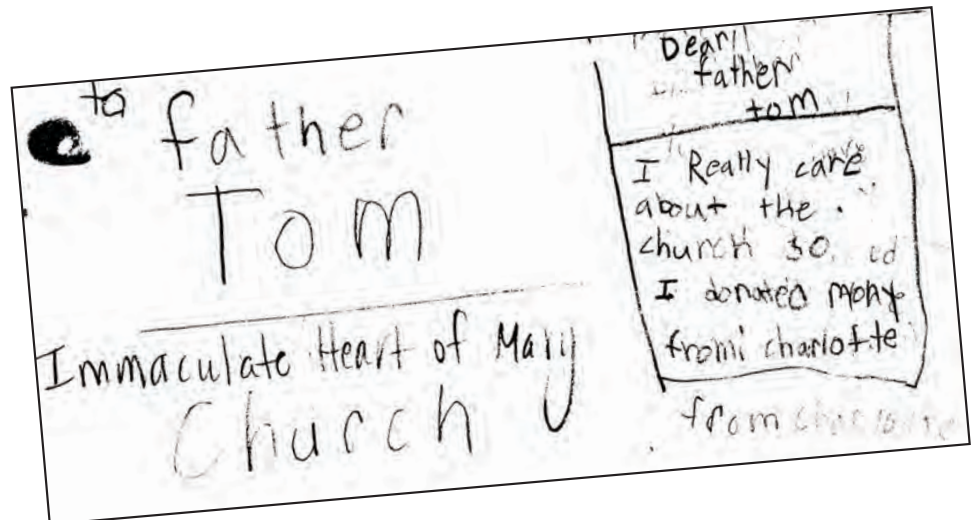 to
father
Tom
Immaculate Heart of Mary
Church
Dear
father
tom
I Really care
about the
church so
I donated mony
from charlotte
from charlotte